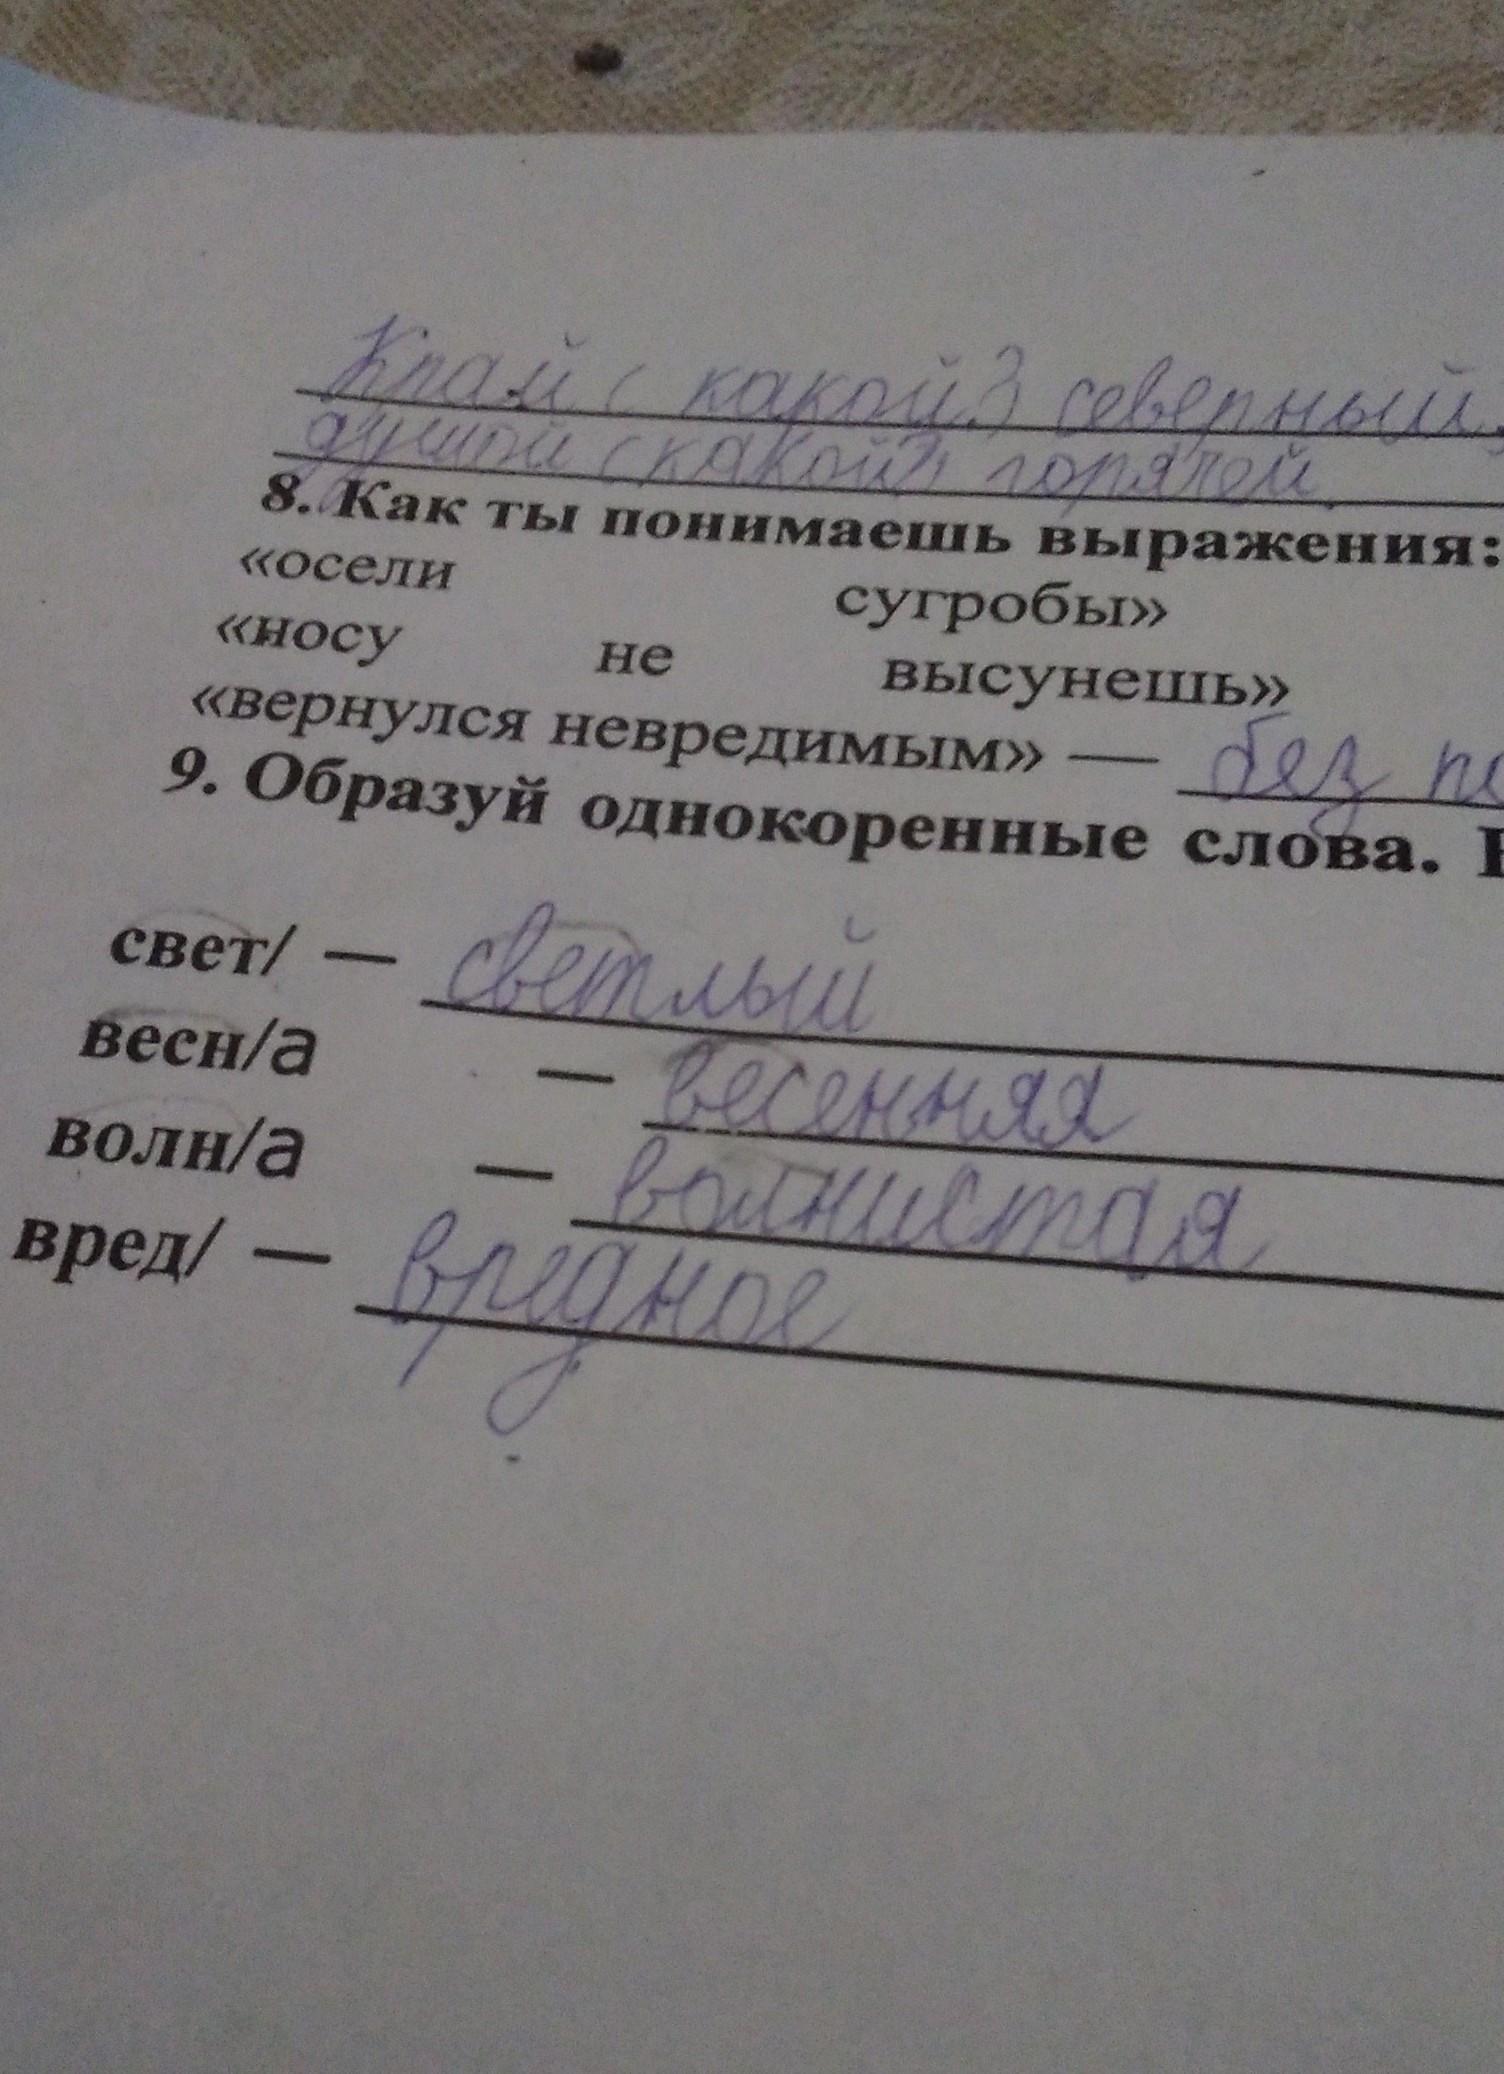 Край ( какой?) северный,
душой (какой?) горячей
8. Как ты понимаешь выражения:
«осели сугробы»
«носу не высунешь»
«вернулся невредимым» — без
9. Образуй однокоренные слова.
свет/ — светлый
весн/а — весенняя
волн/а — волнистая
вред/ — вредное